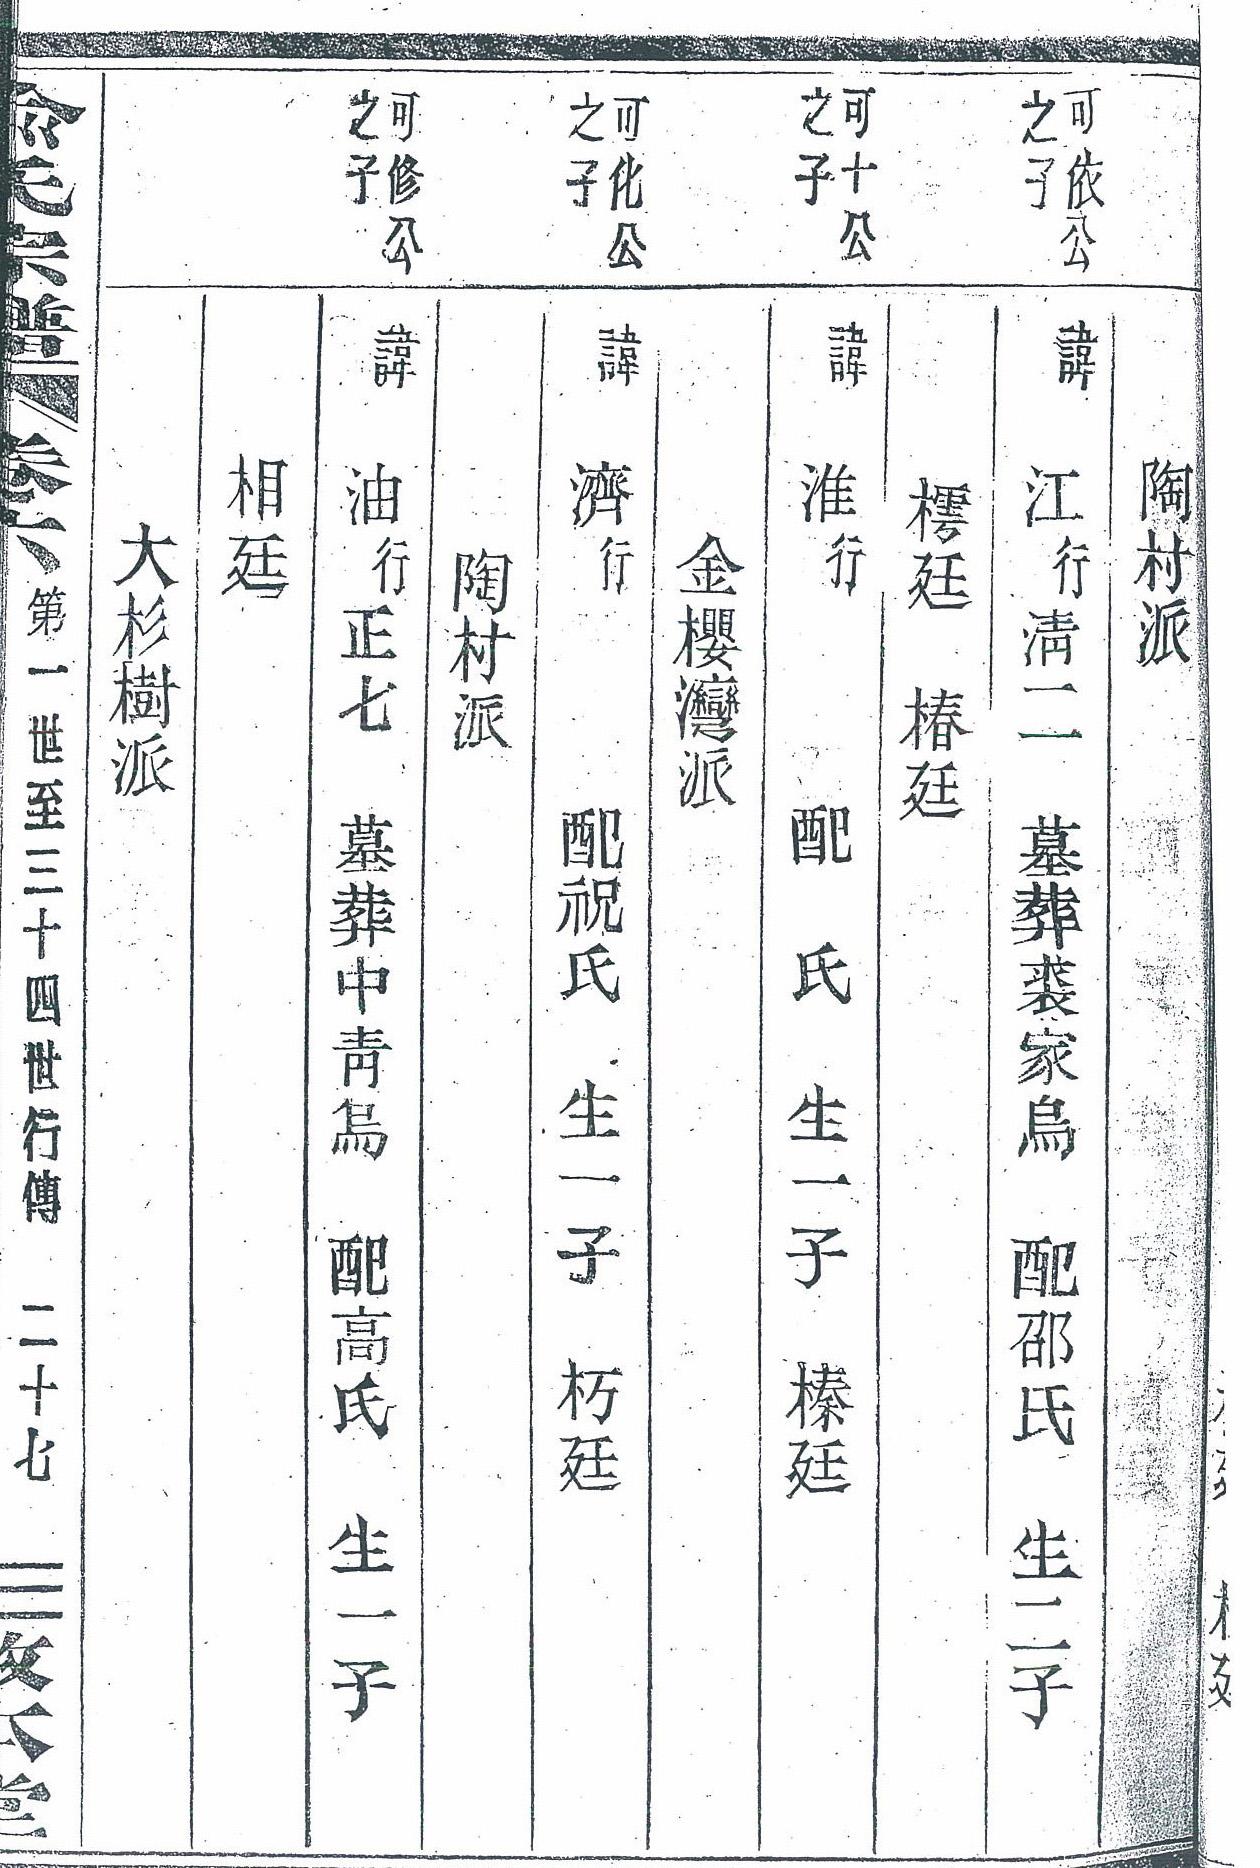 陶村派
可依公
之子
諱 江行清二 墓葬裘家烏 配邵氏 生二子
樗廷 椿廷
可十公
之子
諱 淮行 配 氏 生一子 榛廷
金櫻灣派
可化公
之子
諱 濟行 配祝氏 生一子 朽廷
陶村派
可修公
之子
諱 油行正七 墓葬中青烏 配高氏 生一子
相廷
大杉樹派
俞氏宗譜 卷六 第一世至三十四世行傳 二十七 敦本堂